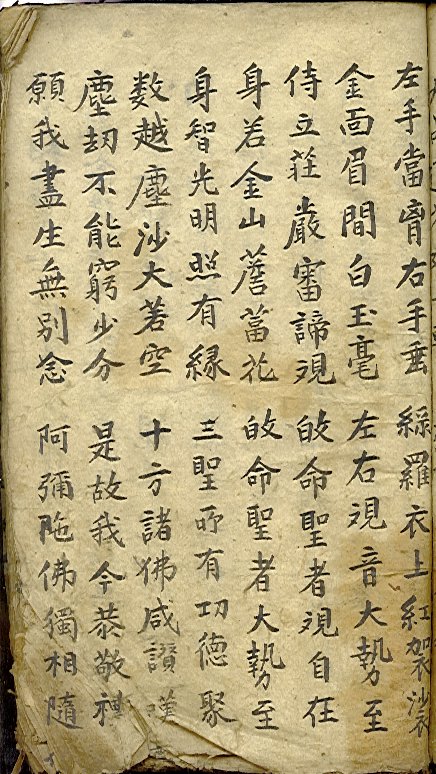 左手當胷右手垂 綠羅衣上紅袈裟
金面眉間白玉毫 左右覌音大勢至
侍立荘嚴審諦覌 皈命聖者覌自在
身若金山薝蔔花 皈命聖者大勢至
身智光明照有緣 三聖所有功德聚
数越塵沙大若空 十方諸佛咸讃嘆
塵刧不能窮少分 是故我今恭敬禮
願我盡生無別念 阿彌陁佛獨相隨